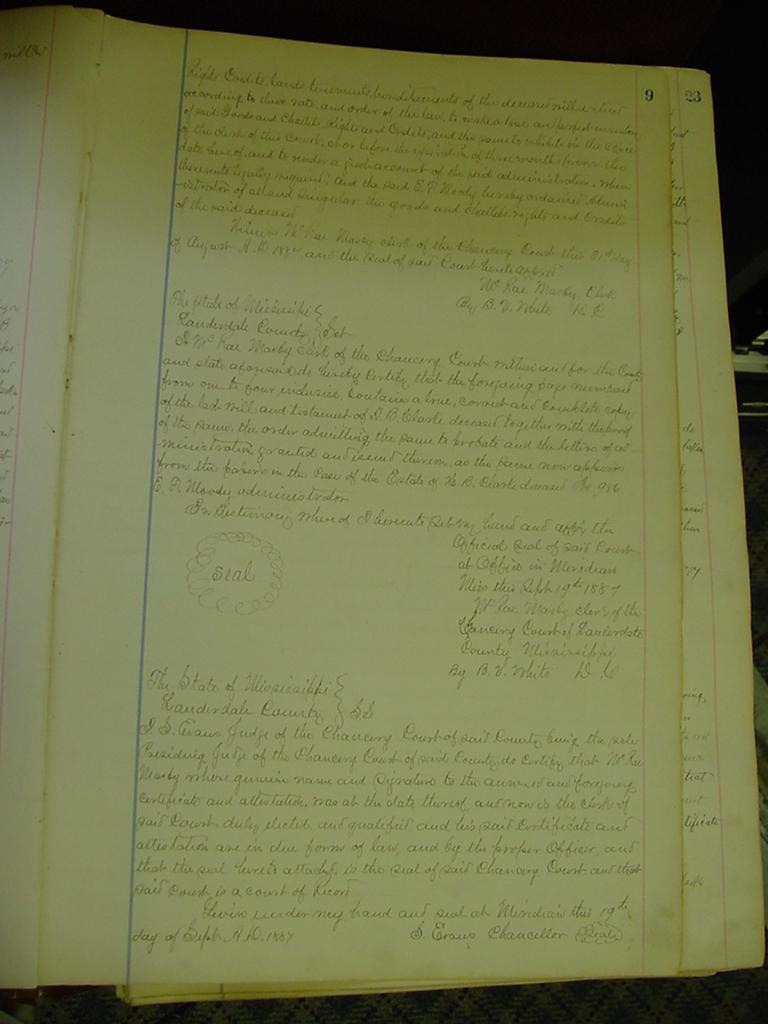 9
23
Rights Credits, lands, tenements, hereditaments of the deceased will extend
according to their rate and order of the law, to make a true and perfect inventory
of said Goods and Chattels Rights and Credits, and the same to exhibit in the office
of the clerk of this Court, at or before the expiration of three month from the
date hereof, and to render a just account of the said administration, when
thereunto legally required; and the said E. F. Moody hereby ordained Admin-
istrator of all and singular the goods and chattels, rights and Credits
of the said deceased
Witness Mc Rae Mosby clerk of the Chancery Court this 31st day
of August A.D. 1887, and the seal of said Court hereto affixed
Mc Rae Mosby Clerk
By B. V. White D. C.
The State of Mississippi
Lauderdale County } Sct
I Mc Rae Mosby clerk of the Chancery Court within and for the County
and state aforesaid do hereby Certify that the foregoing page numbered
from one to four inclusive, Contains a true, correct and complete copy
of the last will and testament of B. Clarke deceased together with the proof
of the same, the order admitting the same to probate and the letters of ad-
ministration granted and issued thereon, as the same now appears
from the papers in the Case of the Estate of B. Clarke deceased No. 986
E. F. Moody administrator
In Testimony whereof I hereunto set my hand and affix the
Official seal of said Court
at Office in Meridian
Miss this Sept 19th 1887
Mc Rae Mosby clerk of the
Chancery Court of Lauderdale
County Mississippi
By B. V. White D. C
seal
The State of Mississippi
Lauderdale County } SS
I S. Evans Judge of the Chancery Court of said County being the sole
Presiding Judge of the Chancery Court of said County do Certify that Mc Rae
Mosby whose genuine name and signature to the annexed and foregoing
certificate and attestation, was at the date thereof and now is the clerk of
said Court duly elected and qualified and his said Certificate and
attestation are in due form of law, and by the proper Officer, and
that the seal hereto attached, is the seal of said Chancery Court and that
said Court is a court of Record
Given under my hand and seal at Meridian this 19th
day of Sept A.D. 1887 S. Evans Chancellor Seal